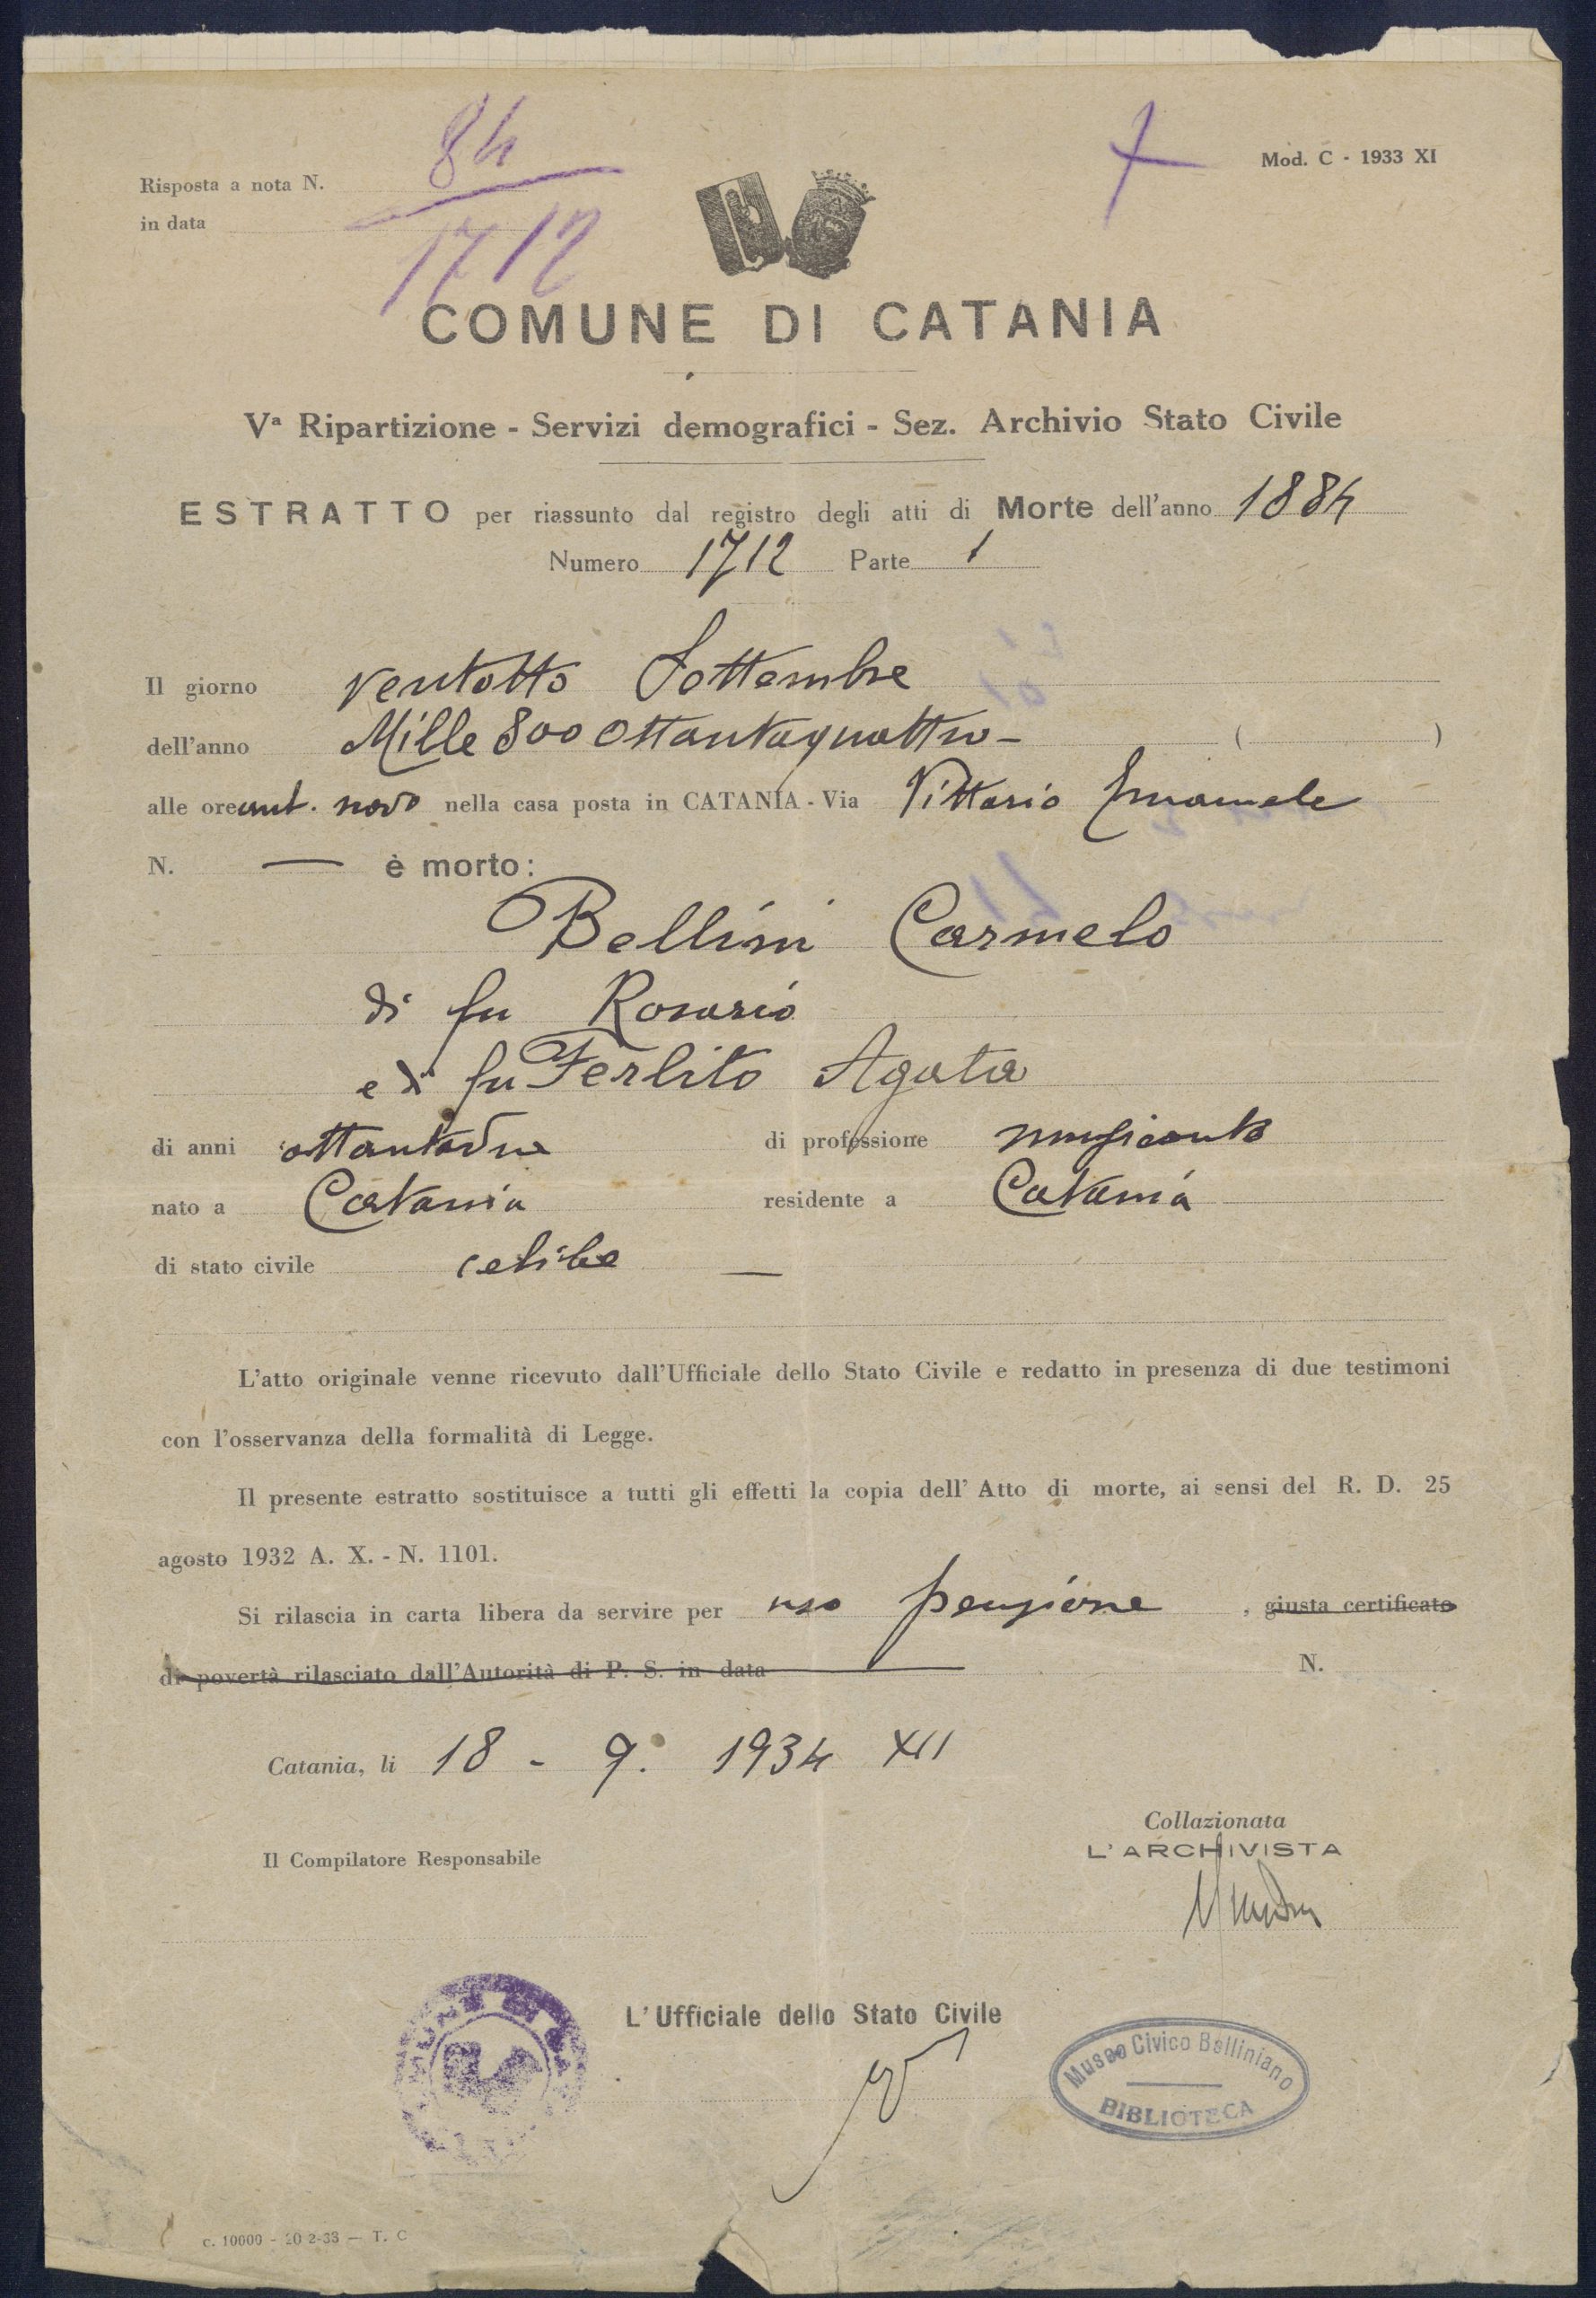 84
1712
Mod. C - 1933 XI
Risposta a nota N.
in data
COMUNE DI CATANIA
Vª Ripartizione - Servizi demografici - Sez. Archivio Stato Civile
ESTRATTO per riassunto dal registro degli atti di Morte dell'anno 1884
Numero 1712 Parte 1
Il giorno ventotto Settembre
dell'anno Mille 800 Ottantaquattro - ( )
alle ore ant. nove nella casa posta in CATANIA - Via Vittorio Emanuele
N. — è morto:
Bellini Carmelo
di fu Rosario
e di fu Ferlito Agata
di anni ottantadue di professione musicante
nato a Catania residente a Catania
di stato civile celibe —
L'atto originale venne ricevuto dall'Ufficiale dello Stato Civile e redatto in presenza di due testimoni
con l'osservanza della formalità di Legge.
Il presente estratto sostituisce a tutti gli effetti la copia dell' Atto di morte, ai sensi del R. D. 25
agosto 1932 A. X. - N. 1101.
Si rilascia in carta libera da servire per uso pensione , giusta certificato
di povertà rilasciato dall'Autorità di P. S. in data N.
Catania, li 18 - 9. 1934 XII
Collazionata
L'ARCHIVISTA
Il Compilatore Responsabile
L'Ufficiale dello Stato Civile
Museo Civico Belliniano
BIBLIOTECA
c. 10000 - 20 2-33 — T. C